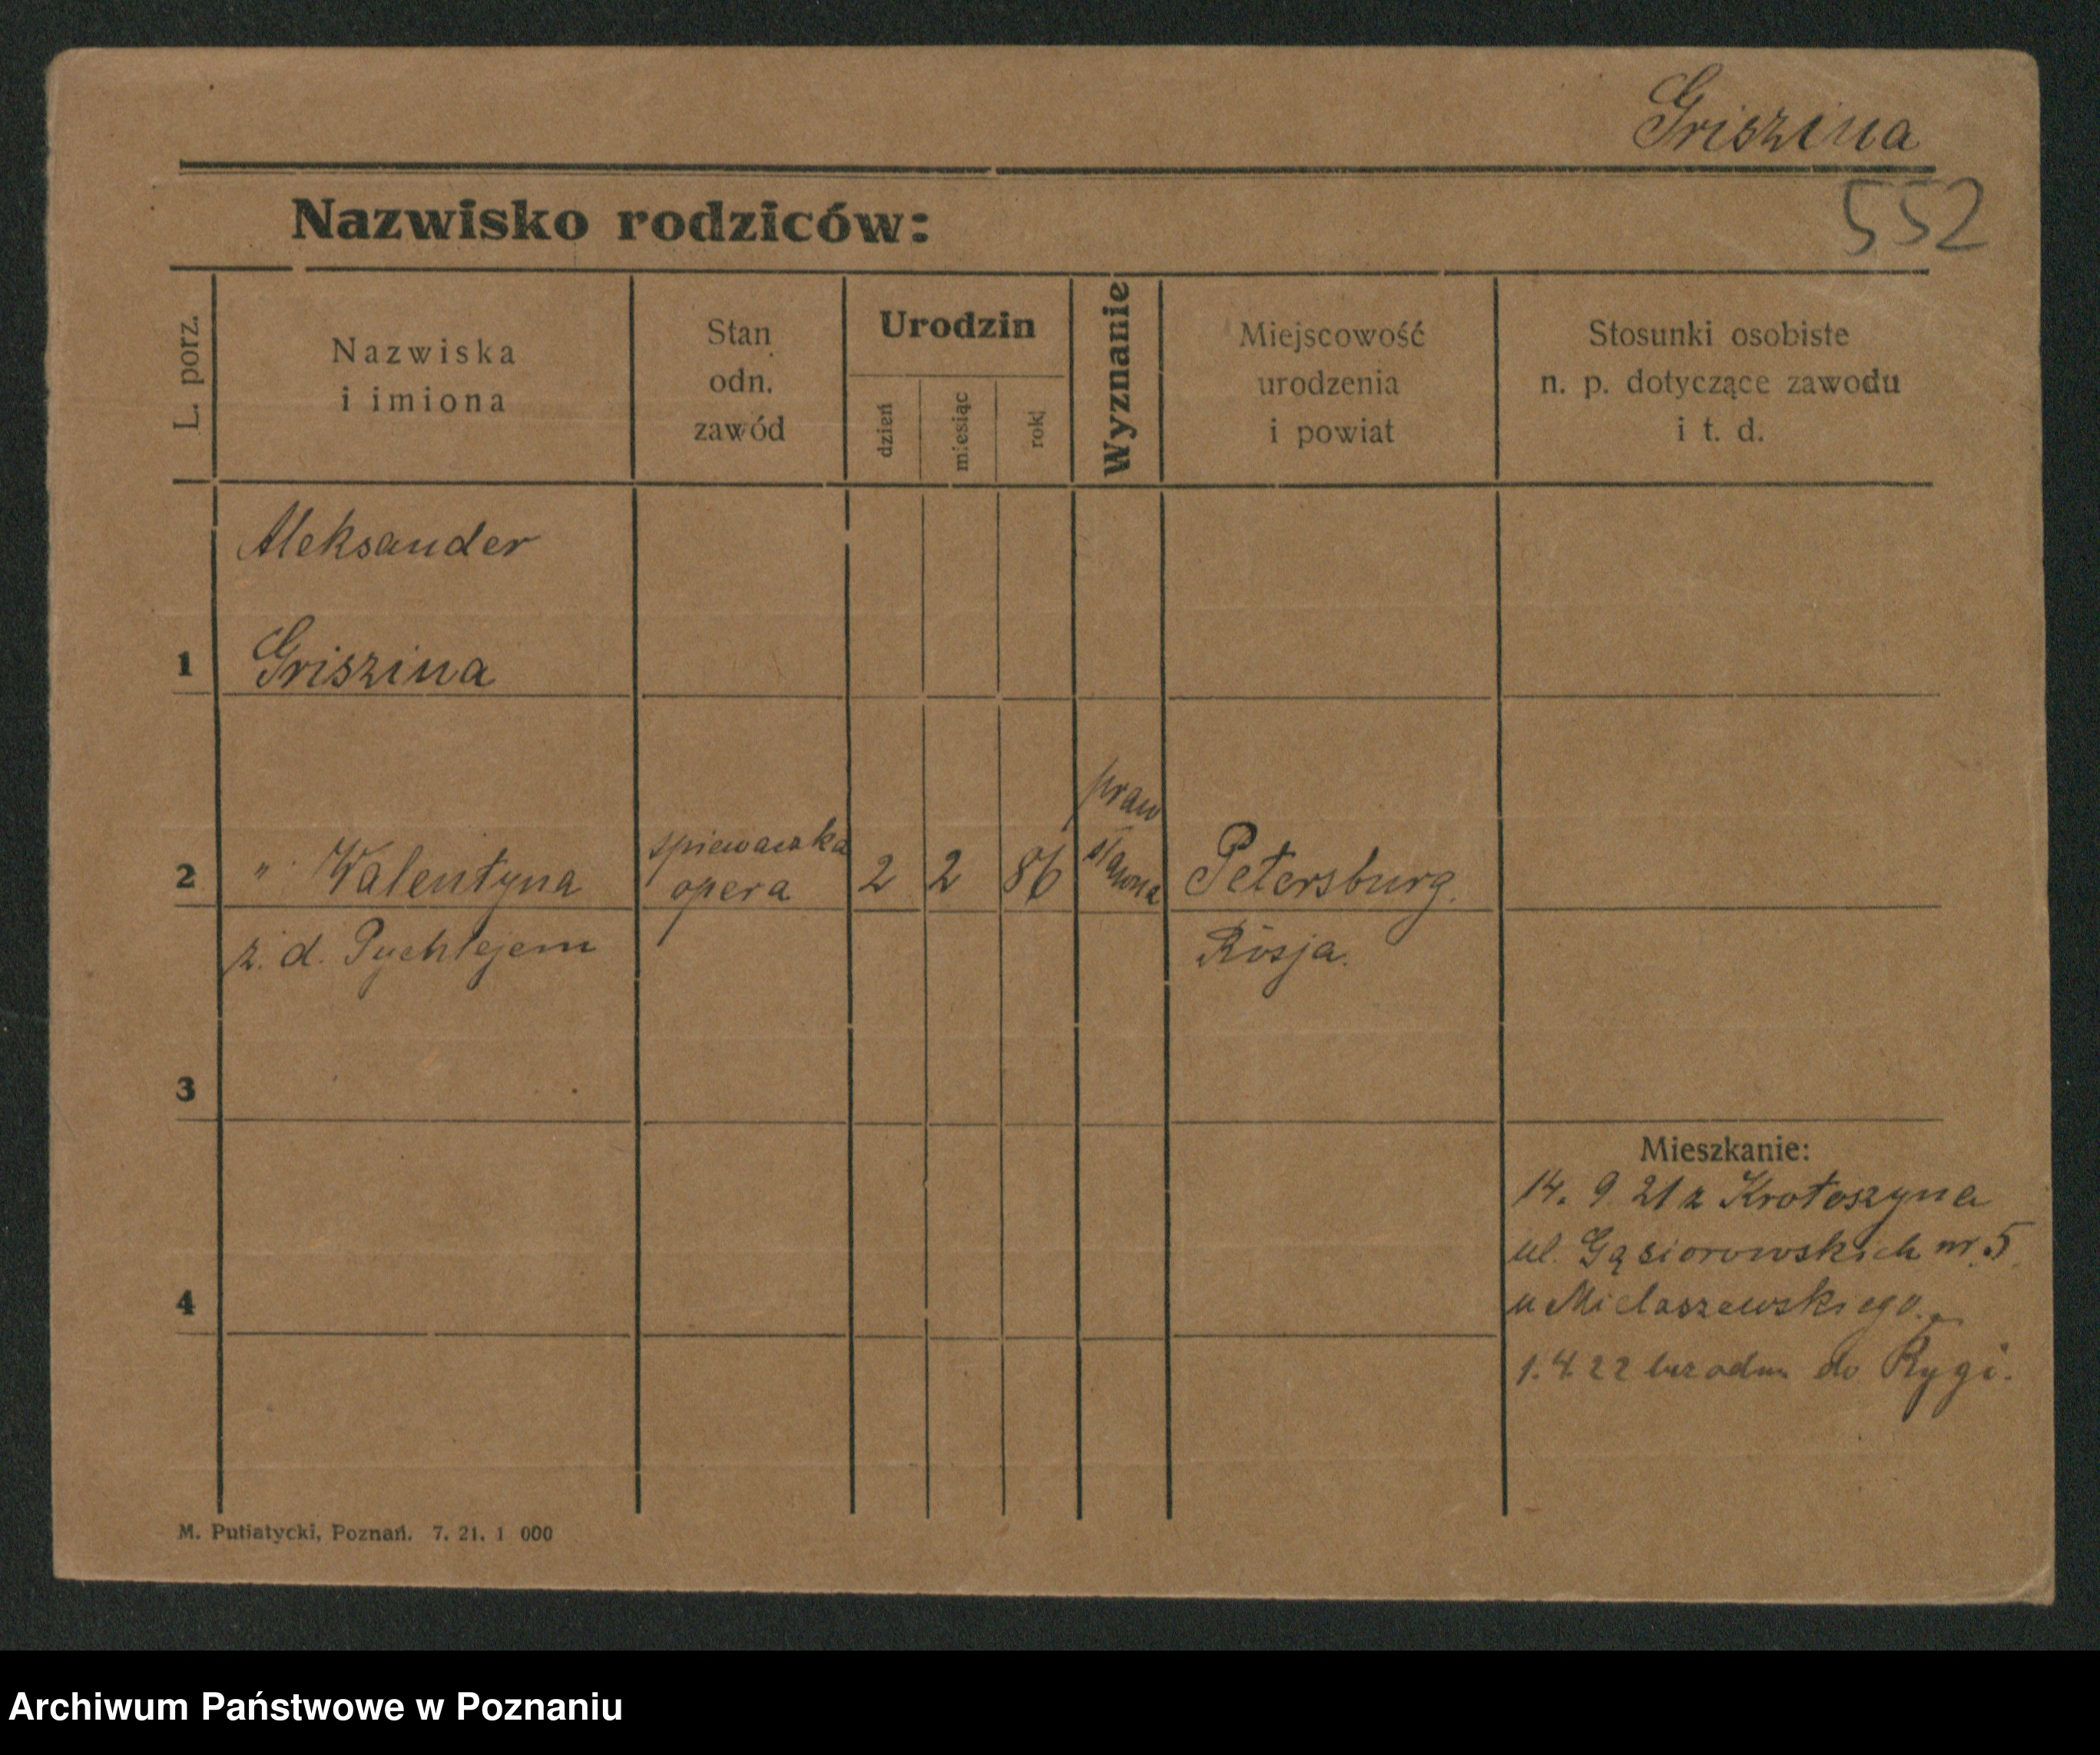 Griszina
552
Nazwisko rodziców:
L. porz.
Nazwiska
i imiona
Stan
odn.
zawód
Urodzin
dzień
miesiąc
rok
Wyznanie
Miejscowość
urodzenia
i powiat
Stosunki osobiste
n. p. dotyczące zawodu
i t. d.
Aleksander
1 Griszina
2 " Walentyna
z. d. Pychlejem
spiewaczka
opera
2 2 86
praw
sławna
Petersburg.
Rosja.
3
4
Mieszkanie:
14. 9. 21 z Krotoszyna
ul. Gąsiorowskich nr. 5.
u Mielaszewskiego.
1. 4. 22 bez odm do Rygi.
M. Putiatycki, Poznań. 7. 21. 1 000
Archiwum Państwowe w Poznaniu